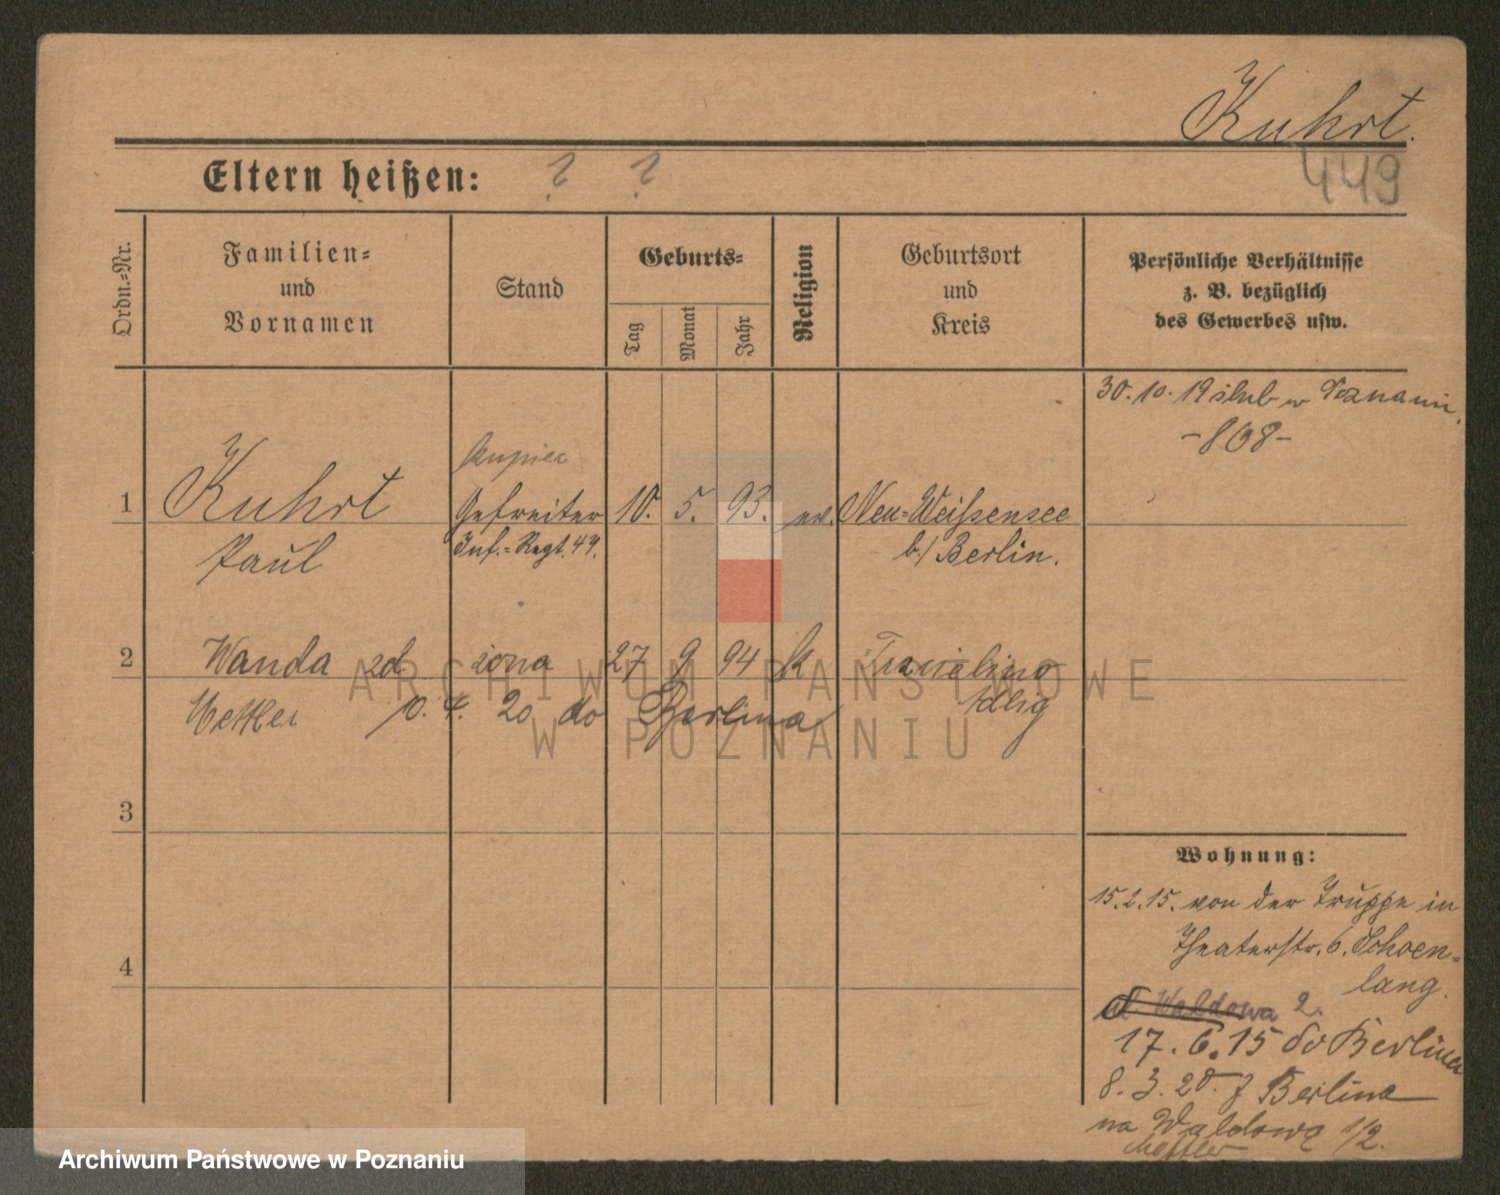 Kuhrt.
449
Eltern heißen: ? ?
Ordn.-Nr.
Familien-
und
Vornamen
Stand
Geburts-
Tag
Monat
Jahr
Religion
Geburtsort
und
Kreis
Persönliche Verhältnisse
z. B. bezüglich
des Gewerbes usw.
30.10.19 ślub w Poznaniu.
-868-
kupiec
1 Kuhrt Gefreiter 10. 5. 93. ev. Neu-Weißensee
Paul Inf.-Regt. 47. b/ Berlin.
2 Wanda zd żona 27 9 94 k
Mettler 10. 4. 20 do Berlina
3
4
Wohnung:
15.2.15. von der Truppe in
Theaterstr. 6. Schoen-
lang.
Waldowa 2.
17.6.15 do Berlina
8.3.20. z Berlina
na Waldowę 1/2.
Mettler
ARCHIWUM PAŃSTWOWE
W POZNANIU
Archiwum Państwowe w Poznaniu